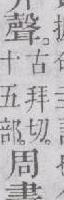 聲。
古拜切。
十五部。
周書